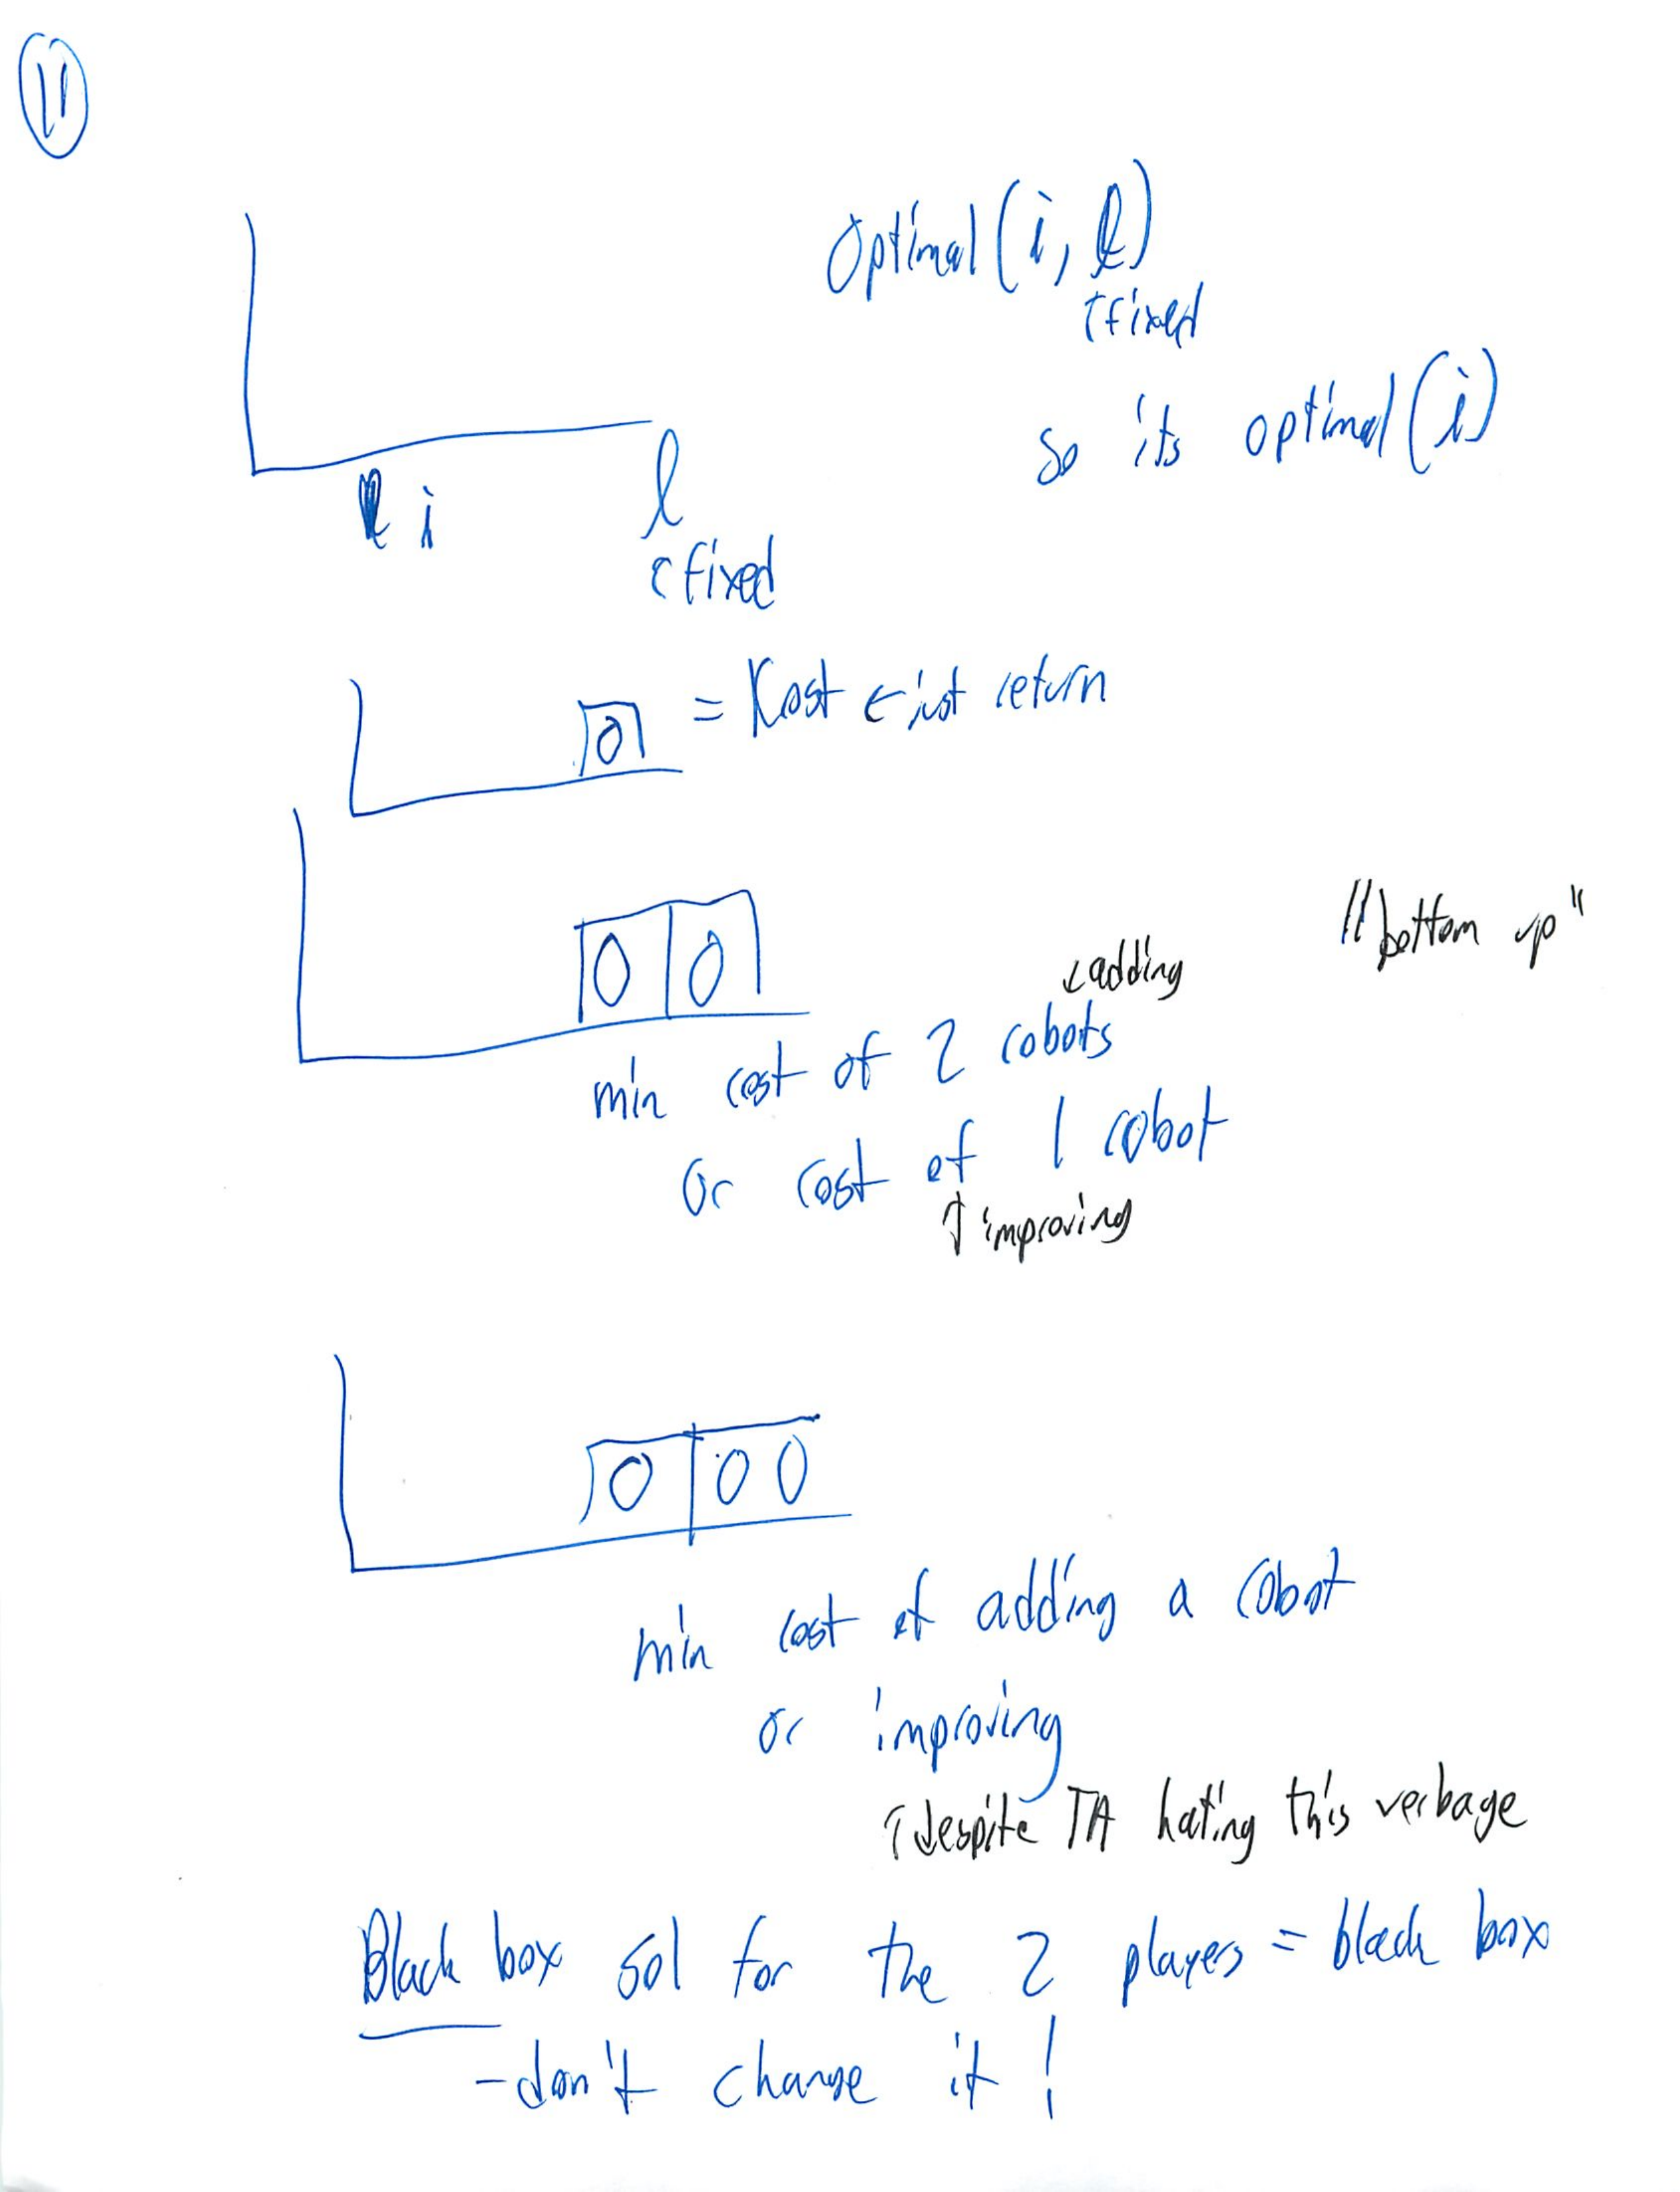 11
Optimal (i, l)
↑fixed
so its optimal (i)
i l
↑fixed
0 = Kost ← just return
0 0
"bottom up"
↙adding
min cost of 2 cobots
or cost of 1 cobot
↑ improving
0 0 0
min cost of adding a cobot
or improving
↑despite TA hating this verbage
Black box sol for the 2 players = black box
- don't change it!